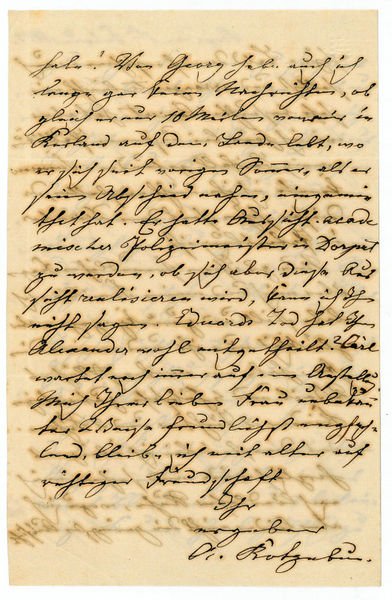 habe! Von Georg habe auch ich
lange gar keine Nachrichten, ob
gleich er nur 10 Meilen von mir in
Kurland auf dem Lande lebt, wo
er sich seit vorigem Sommer, als er
seinen Abschied nahm, eingemie
thet hat. Er hatte Aussicht acade
mischer Polizeimeister in Dorpat
zu werden, ob sich aber diese Aus
sicht realisieren wird, kann ich Ihnen
nicht sagen. Eduards Tod hat Ihnen
Alexander wohl mitgetheilt? Carl
wartet noch immer auf eine Anstellung
Mich Ihrer lieben Frau unbekann
ter Weise freundlichst empfeh
lend, bleibe ich mit alter auf
richtiger Freundschaft
Ihr
ergebener
A. Kotzebue.